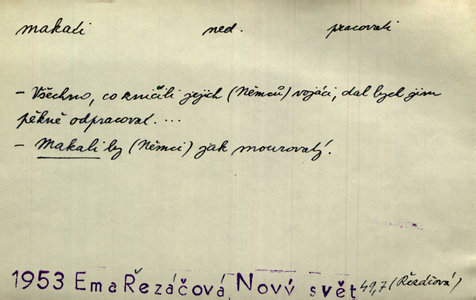 makati ned. pracovati
– Všechno, co zničili jejich (Němců) vojáci, dal bych jim
pěkně odpracovat. ...
– Makali by (Němci) jak mourovatý.
1953 Ema Řezáčová, Nový svět 49,7 (Řezáčová)